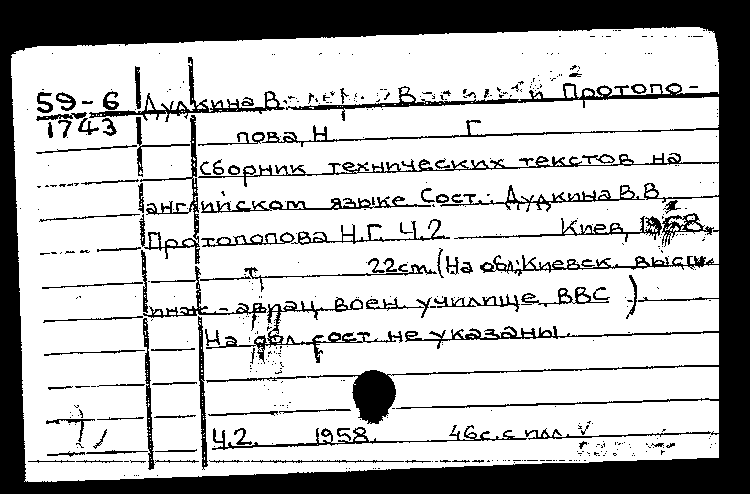 59-6 Дудкина, В. В Протопо-
1743 пова, Н Г
Сборник технических текстов на
английском языке Сост.: Дудкина В.В.,
Протопопова Н.Г. Ч.2 Киев, 1958.
22см. (На обл.: Киевск. высш.
инж.-авиац. воен. училище ВВС).
На обл. сост. не указаны.
Ч.2. 1958. 46с. с илл.